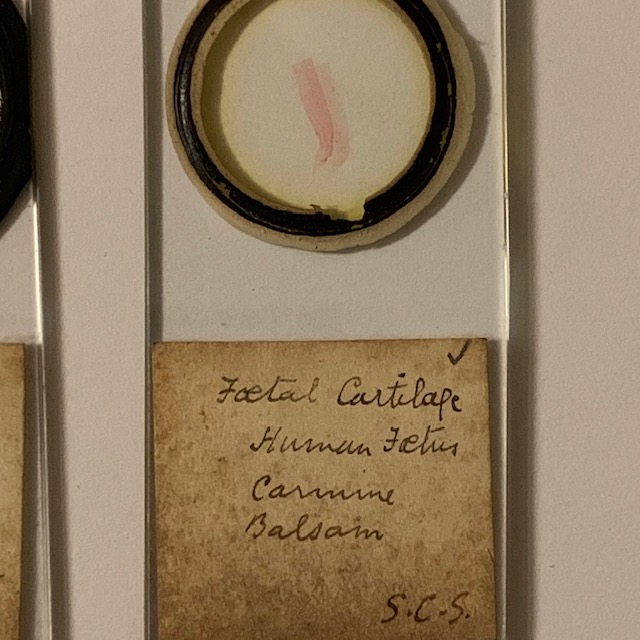 ✓
Fœtal Cartilage
Human Fœtus
Carmine
Balsam
S.C.S.